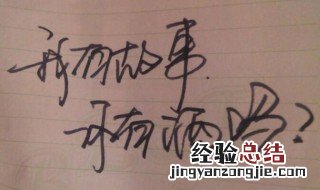 我有故事.
可有酒吗?
经验总结
jingyanzongjie.com